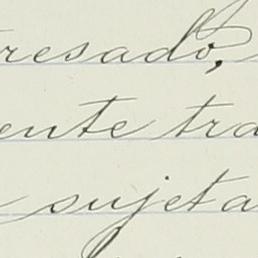 resado,
ente tra
sujeta